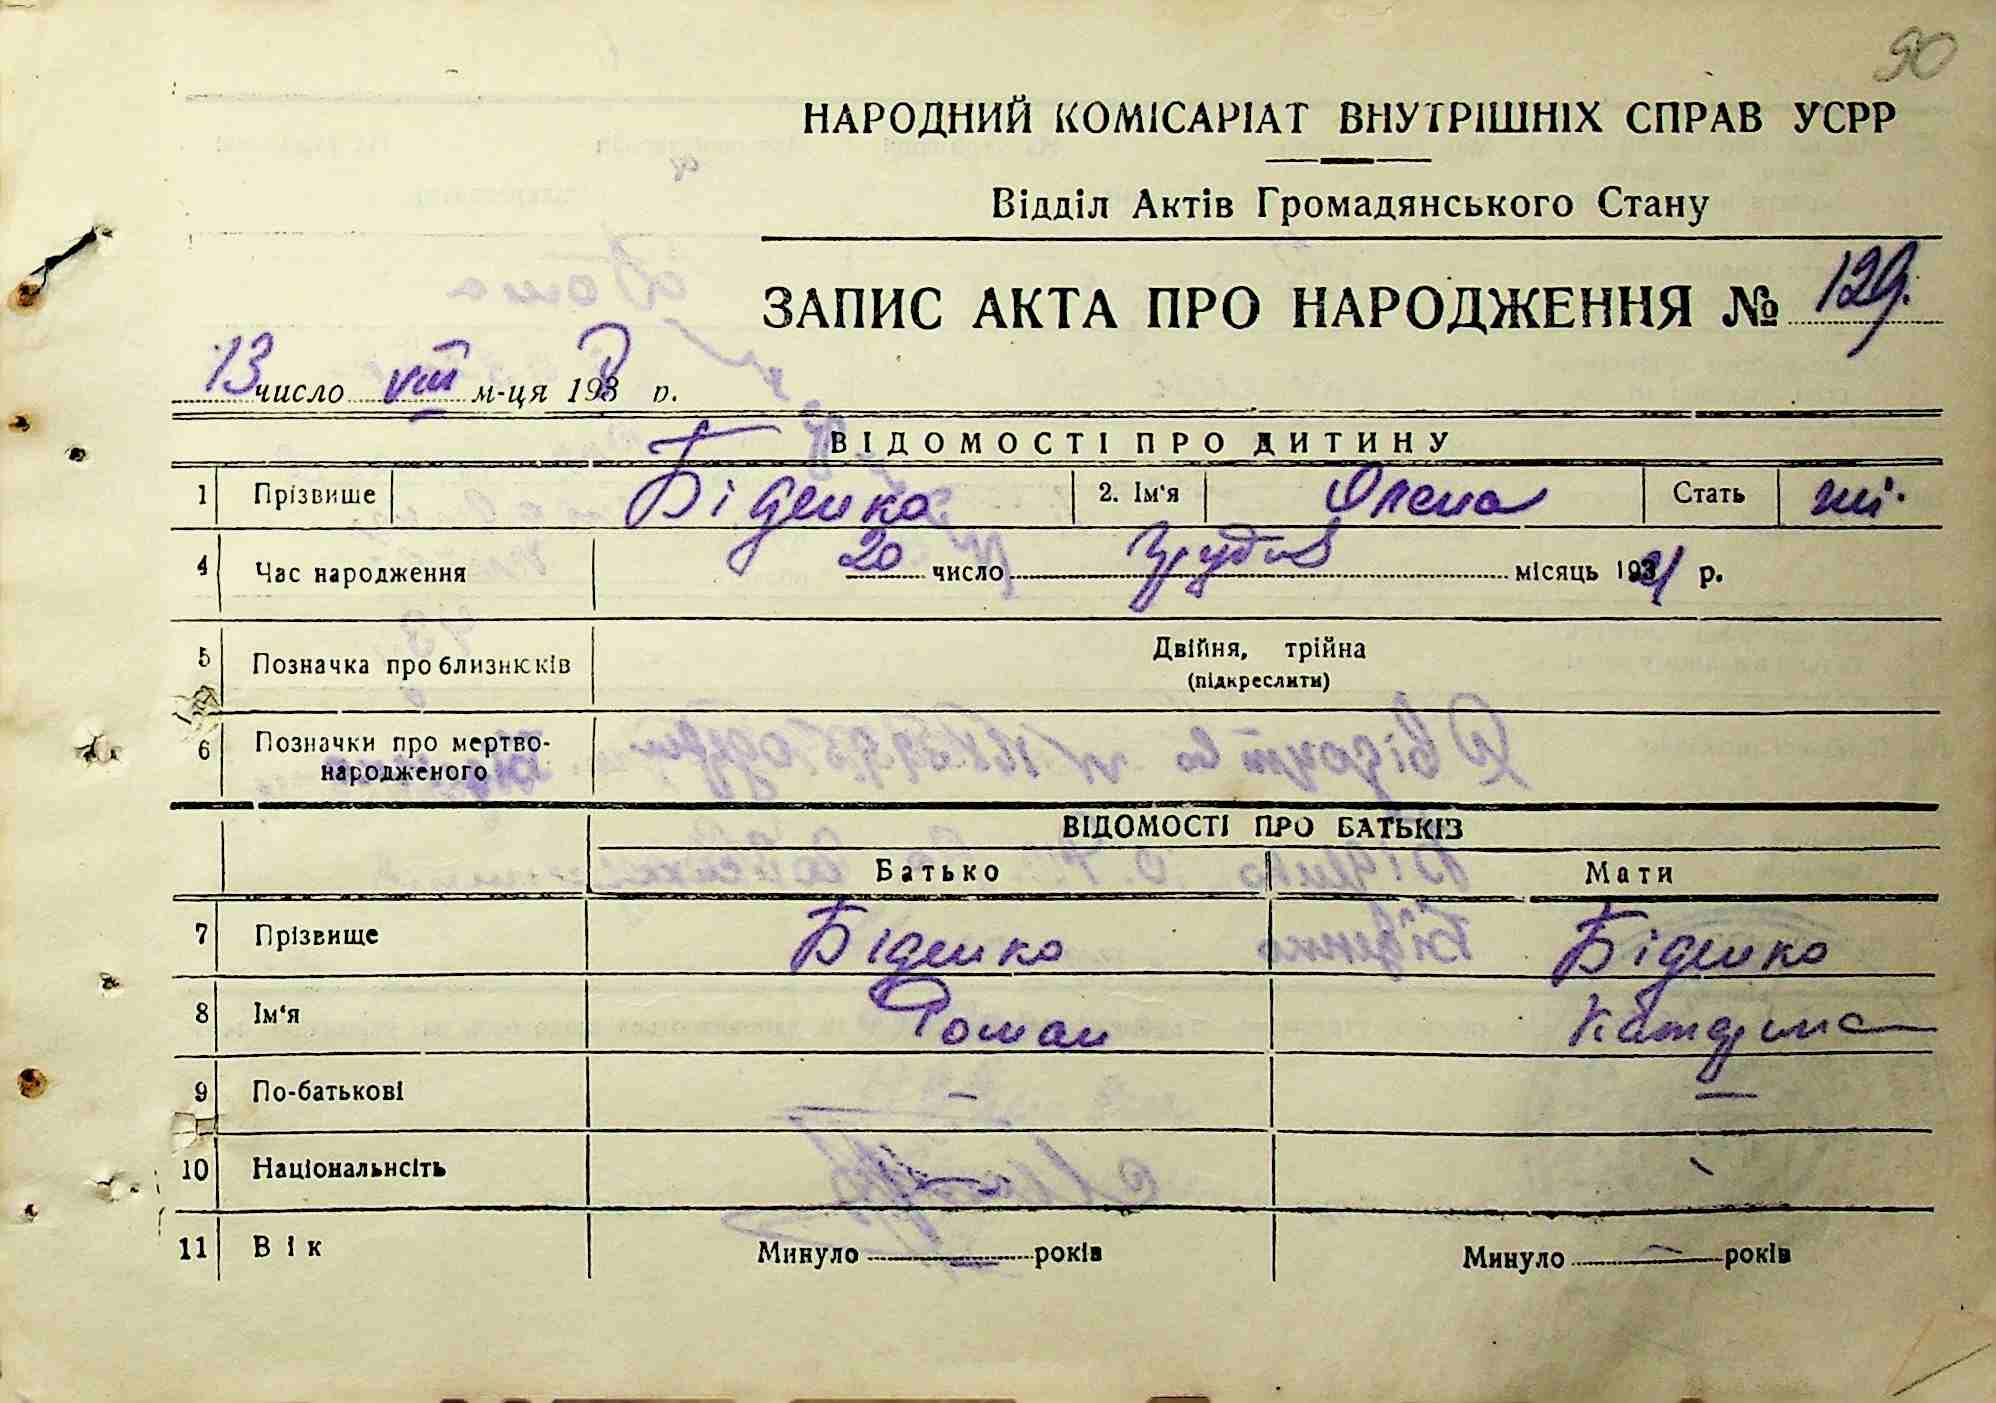 90
НАРОДНИЙ КОМІСАРІАТ ВНУТРІШНІХ СПРАВ УСРР
Відділ Актів Громадянського Стану
ЗАПИС АКТА ПРО НАРОДЖЕННЯ № 129.
13 число VIII м-ця 193 р.
ВІДОМОСТІ ПРО ДИТИНУ
1 Прізвише Біденко 2. Ім'я Олена Стать жі.
4 Час народження 20 число Грудня місяць 1921 р.
5 Позначка про близнюків Двійня, трійна
(підкреслити)
6 Позначки про мертво-
народженого
ВІДОМОСТІ ПРО БАТЬКІВ
Батько Мати
7 Прізвище Біденко Біденко
8 Ім'я Роман Катерина
9 По-батькові — —
10 Національнсіть — -
11 Вік Минуло — років Минуло — років